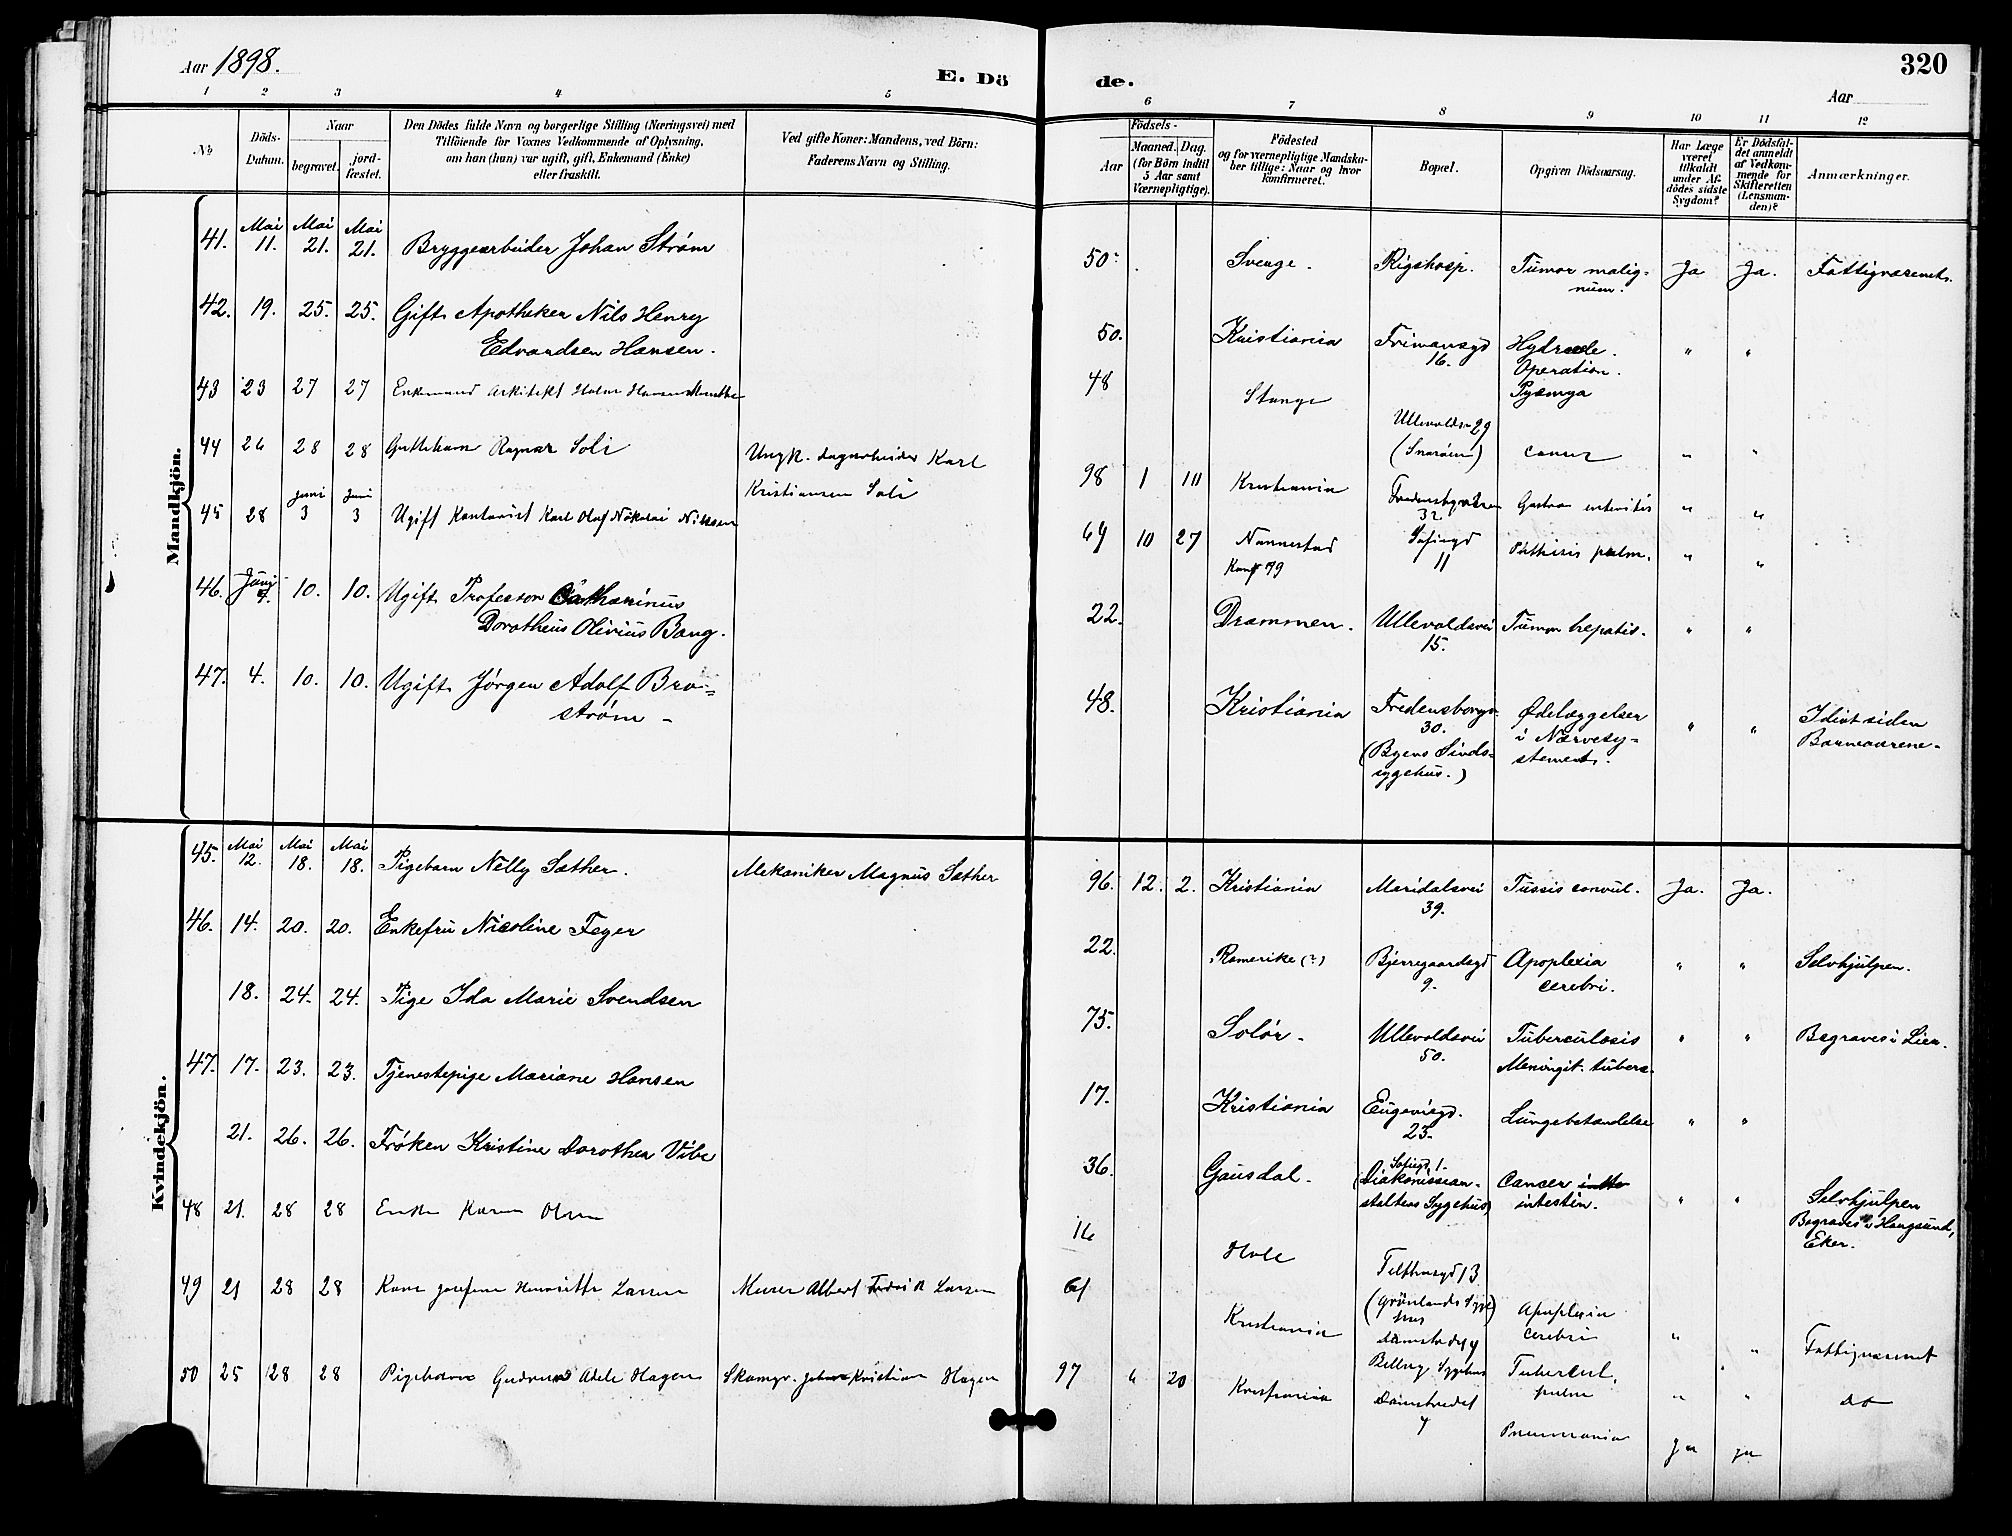 Aar 1898.
E. Dö
de.
320
Aar
1 2 3 4 5
6 7 8 9 10 11 12
No
Döds-
Datum.
Naar
begravet.
jord-
fæstet.
Den Dödes fulde Navn og borgerlige Stilling (Næringsvei) med
Tilföiende for Voxnes Vedkommende af Oplysning,
om han (hun) var ugift, gift, Enkemand (Enke)
eller fraskilt.
Ved gifte Koner: Mandens, ved Börn:
Faderens Navn og Stilling.
Födsels-
Aar
Maaned. Dag.
(for Börn indtil
5 Aar samt
Værnepligtige).
Födested
og for værnepligtige Mandska-
ber tillige: Naar og hvor
konfirmeret.
Bopæl.
Opgiven Dödsaarsag.
Har Læge
været
tilkaldt
under Af-
dödes sidste
Sygdom?
Er Dödsfal-
det anmeldt
af Vedkom-
mende for
Skifteretten
(Lensman-
den)?
Anmærkninger.
Mandkjön.
41. Mai 11. Mai 21. Mai 21. Bryggearbeider Johan Strøm
50. Sverige. Rigshosp. Tumor malig-
num. Ja Ja. Fattigvæsenet.
42. 19. 25. 25. Gift Apotheker Nils Henry
Edvardsen Hansen.
50. Kristiania Frimansgd
16. Hydrocele.
Operation.
Pyæmya " "
43 23 27 27 Enkemand Arkitekt Holm Hansen Munthe
48 Stange Ullevoldsv 29
(Snarøen) cancer " "
44 26 28 28 Guttebarn Ragnar Soli
Ungk. dagarbeider Karl
Kristiansen Soli
98 1 10 Kristiania Fredensborgveien
32 Gastro enteritis " "
45 28 Juni 3 Juni 3 Ugift Kontorist Karl Olaf Nikolai Nilssen
69 10 27 Nannestad
Konf 79 Sofiegd
11 Phthisis pulm. " "
46. Juni 10. 10. Ugift Professor Catharinus
Dorotheus Olivius Bang.
22. Drammen. Ullevoldsvei
15. Tumor hepatis. " "
47. 4. 10. 10. Ugift Jørgen Adolf Bro-
strøm
48. Kristiania Fredensborgv.
30.
(Byens Sinds-
sygehus.) Ødelæggelser
i Nærvesy-
stemet. " " Idiot siden
Barneaarene.
Kvindekjön.
45. Mai 12. Mai 18. Mai 18. Pigebarn Nelly Sæther. Mekaniker Magnus Sæther
96. 12. 2. Kristiania Maridalsvei
39. Tussis convul. Ja. Ja.
46. 14. 20. 20. Enkefru Nicoline Feyer
22. Romerike (?) Bjerregaardsgd
9. Apoplexia
cerebri. " " Selvhjulpen.
18. 24. 24. Pige Ida Marie Svendsen
75. Solør. Ullevoldsvei
50. Tuberculosis
Meningit. tuberc. " " Begraves i Lier.
47. 17. 23. 23. Tjenestepige Mariane Hansen
17. Kristiania Eugeniegd.
23. Lungebetændelse " "
21. 26. 26. Frøken Kristine Dorothea Vibe
36. Gausdal. Sofiegd. 1.
(Diakonissean-
staltens Sygehus) Cancer
intestin. " " Selvhjulpen
Begraves i Haugsund,
Eker.
48 21. 28 28 Enke Karen Olsen
16 Hole Tofthesgd 13
(Grönlands Syge
hus Apoplexia
cerebri " " Fattigvæsenet
49 21 28 28 Kone Josefine Henriette Larsen Murer Albert Fredrik Larsen
61 Kristiania Damstredet 4
Tubercul.
pulm " " do
50 25 28 28 Pigebarn Gudrun Adele Hagen Skomgr. Johan Kristian Hagen
97 4 20 Kristiania Damstredet
4 Pneumonia Ja ja